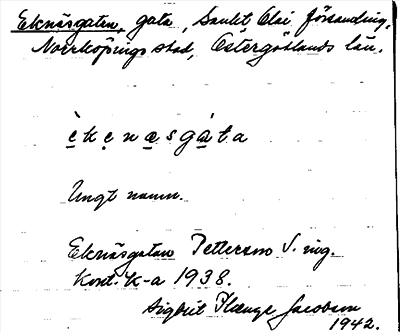 Eknäsgatan, gata, Sankt Olai församling,
Norrköpings stad, Östergötlands län.
è k e n æ s g à t a
Ungt namn.
Eknäsgatan Petterson S. ing.
Kont. K-a 1938.
Sigbrit Plænge Jacobson
1942.